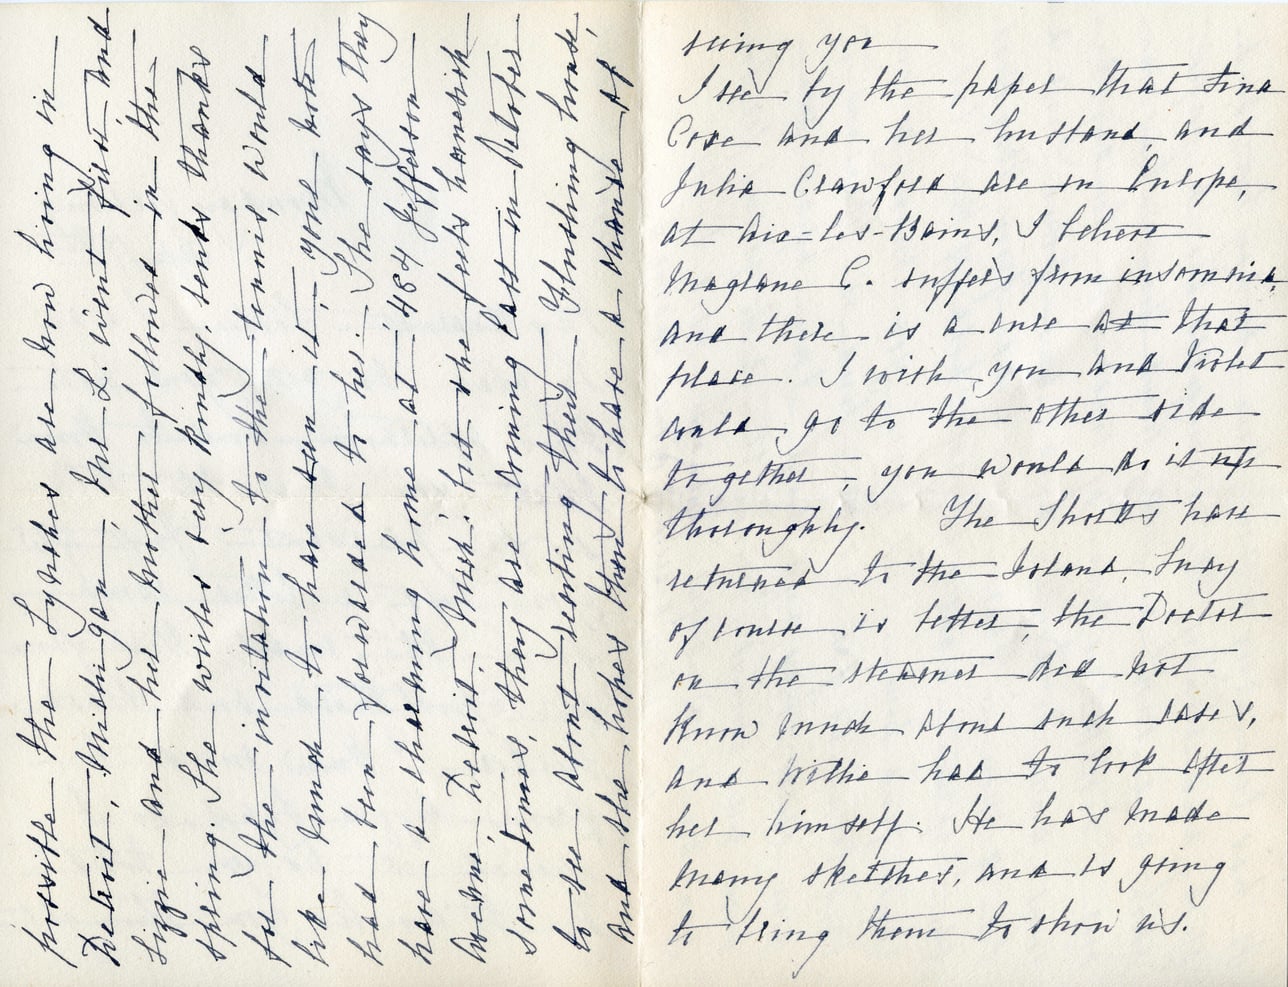 possible the Lynkes are now living in
Detroit, Michigan, Mr L. went first, and
Lizzie and her mother followed in the
spring. She writes very kindly, sends thanks
for the invitation to the tennis, would
like much to have seen it, your note
had been forwarded to her. She says they
have a charming home at 484 Jefferson
Avenue, Detroit, Mich. but she feels homesick
sometimes, they are coming East in October
to see about renting their Flushing house,
and she hopes then to have a chance of
seeing you
I see by the paper that Fina
Coxe and her husband, and
Julia Crawford are in Europe,
at Aix-les-Bains, I believe
Magrane C. suffers from insomnia,
and there is a cure at that
place. I wish you and Violet
could go to the other side
together, you would do it up
thoroughly. The Shortts have
returned to the Island, Lucy
of course is better, the Doctor
on the steamer did not
know much about such cases,
and Willie had to look after
her himself. He has made
many sketches, and is going
to bring them to show us.